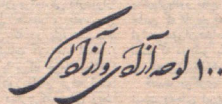 ۱۰۰ لوحه آزادی و آزادگی